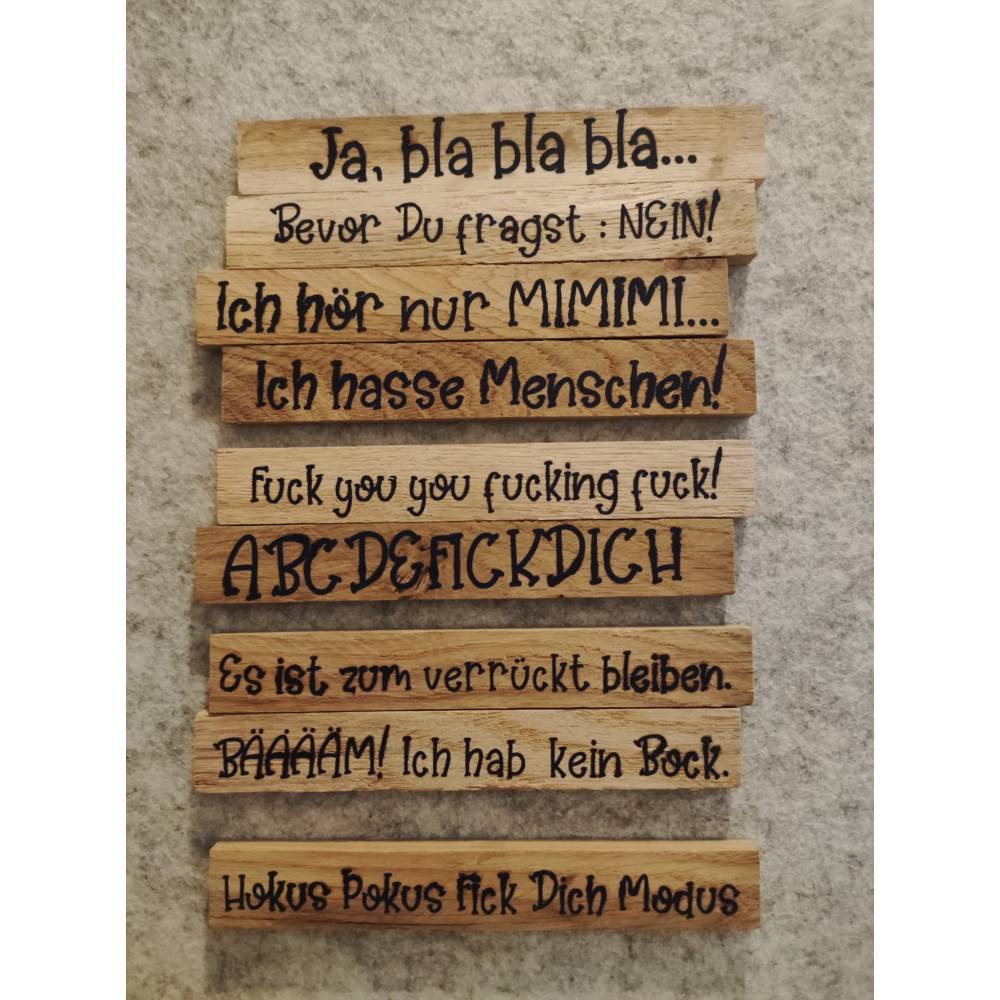 Ja, bla bla bla...
Bevor Du fragst : NEIN!
Ich hör nur MIMIMI...
Ich hasse Menschen!
Fuck you you fucking fuck!
ABCDEFICKDICH
Es ist zum verrückt bleiben.
BÄÄÄÄM! Ich hab kein Bock.
Hokus Pokus Fick Dich Modus